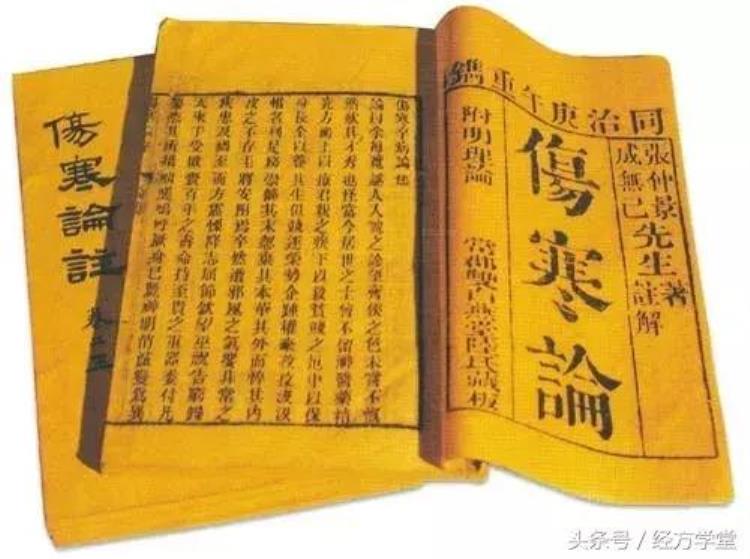 同治庚午重鐫
張仲景
成無己
先生
著
註解
傷寒論
附明理論 常郡雙白燕堂陸氏藏板
傷寒卒病論集
論曰余每覽越人入虢之診望齊侯之色未嘗不慨
然歎其才秀也怪當今居世之士曾不留神醫藥精
究方術上以療君親之疾下以救貧賤之厄中以保
身長全以養其生但競逐榮勢企踵權豪孜孜汲汲
惟名利是務崇飾其末忽棄其本華其外而悴其內
皮之不存毛將安附焉卒然遭邪風之氣嬰非常之
疾患及禍至而方震慄降志屈節欽望巫祝告窮歸
天束手受敗賚百年之壽命持至貴之重器委付凡
醫恣其所措咄嗟嗚呼厥身已斃神明消滅變為異
傷寒論註
头条号／经方学堂